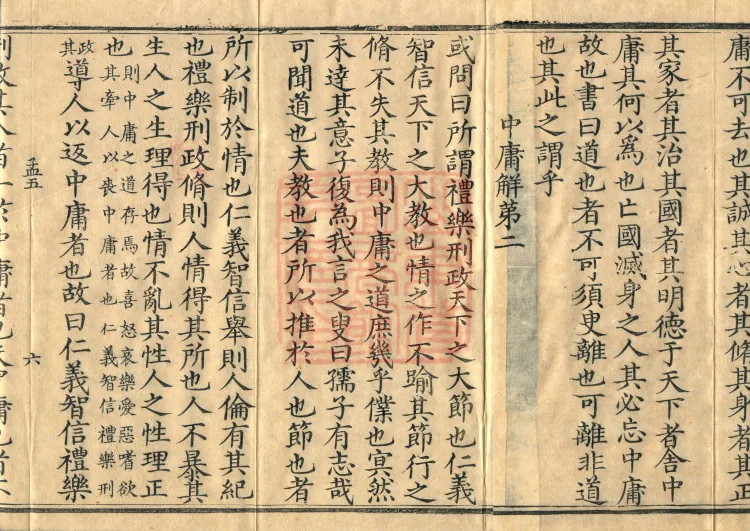 庸不可去也其誠其心者其脩其身者其正
其家者其治其國者其明德于天下者舍中
庸其何以爲也亡國滅身之人其必忘中庸
故也書曰道也者不可須臾離也可離非道
也其此之謂乎
中庸解第二
或問曰所謂禮樂刑政天下之大節也仁義
智信天下之大教也情之作不踰其節行之
脩不失其教則中庸之道庶幾乎僕也寘然
未達其意子復為我言之叟曰孺子有志哉
可聞道也夫教也者所以推於人也節也者
所以制於情也仁義智信舉則人倫有其紀
也禮樂刑政脩則人情得其所也人不暴其
生人之生理得也情不亂其性人之性理正
也則中庸之道存焉故喜怒哀樂愛惡嗜欲
其牽人以喪中庸者也仁義智信禮樂刑
政其導人以返中庸者也故曰仁義智信禮樂
孟五
六
刑政其人者
中庸者也